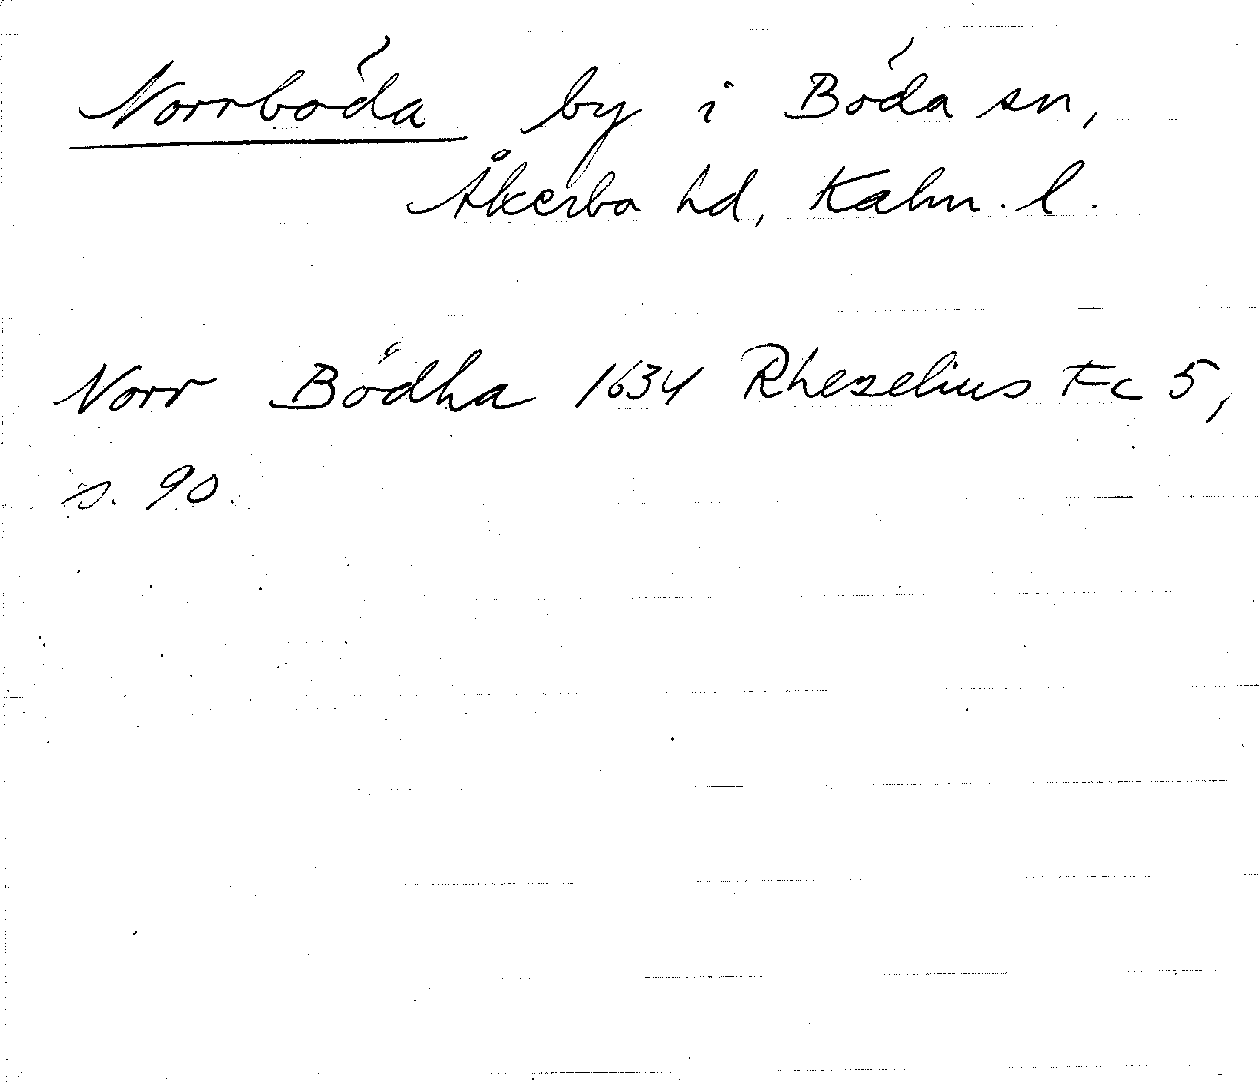 Norrböda by i Böda sn,
Åkerbo hd, Kalm. l.
Norr Bödha 1634 Rhezelius Fc 5,
s. 90.